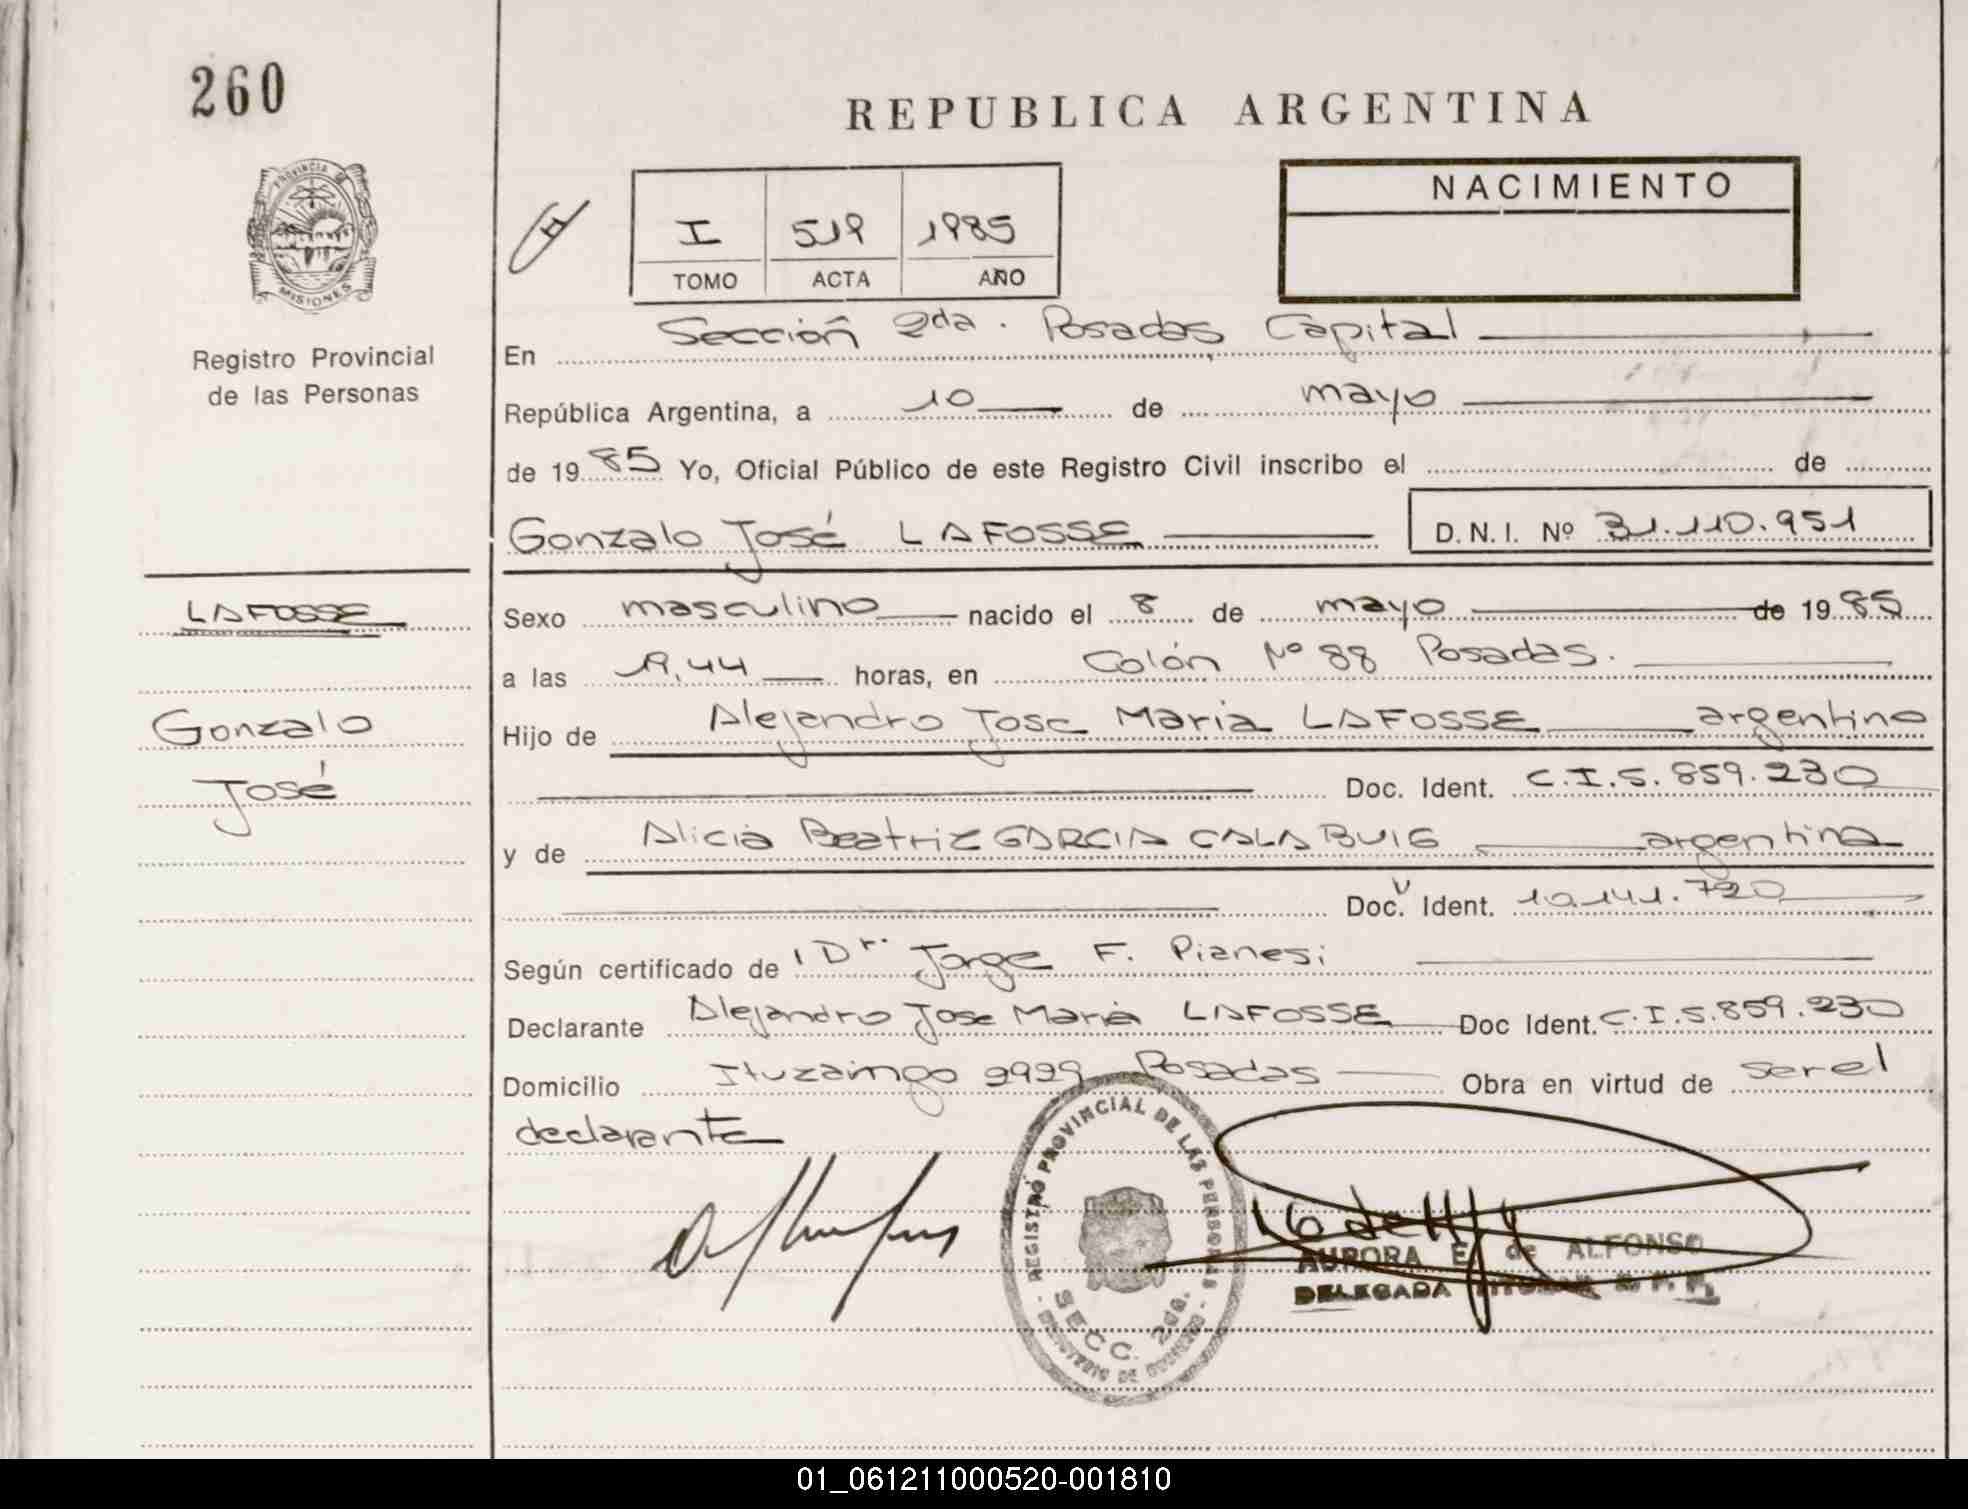 260
REPUBLICA ARGENTINA
PROVINCIA D
MISIONES
Registro Provincial
de las Personas
I 519 1985
TOMO ACTA AÑO
NACIMIENTO
En Sección 2da. Posadas Capital
República Argentina, a 10 de mayo
de 1985 Yo, Oficial Público de este Registro Civil inscribo el de
Gonzalo José LAFOSSE D.N.I. Nº 31.110.951
LAFOSSE
Gonzalo
José
Sexo masculino nacido el 8 de mayo de 1985
a las 19,44 horas, en Colón Nº 88 Posadas.
Hijo de Alejandro Jose Maria LAFOSSE argentino
Doc. Ident. C.I.5.859.230
y de Alicia Beatriz GARCIA CALABUIG argentina
Doc. Ident. 10.141.720
Según certificado de Dr. Jorge F. Pianesi
Declarante Alejandro Jose Maria LAFOSSE Doc Ident. C.I.5.859.230
Domicilio Ituzaingo 2929 Posadas Obra en virtud de ser el
declarante
REGISTRO PROVINCIAL DE LAS PERSONAS
SECC. 2da.
MINISTERIO DE GOBIERNO
AURORA E. de ALFONSO
DELEGADA TITULAR R. P. P.
01_061211000520-001810